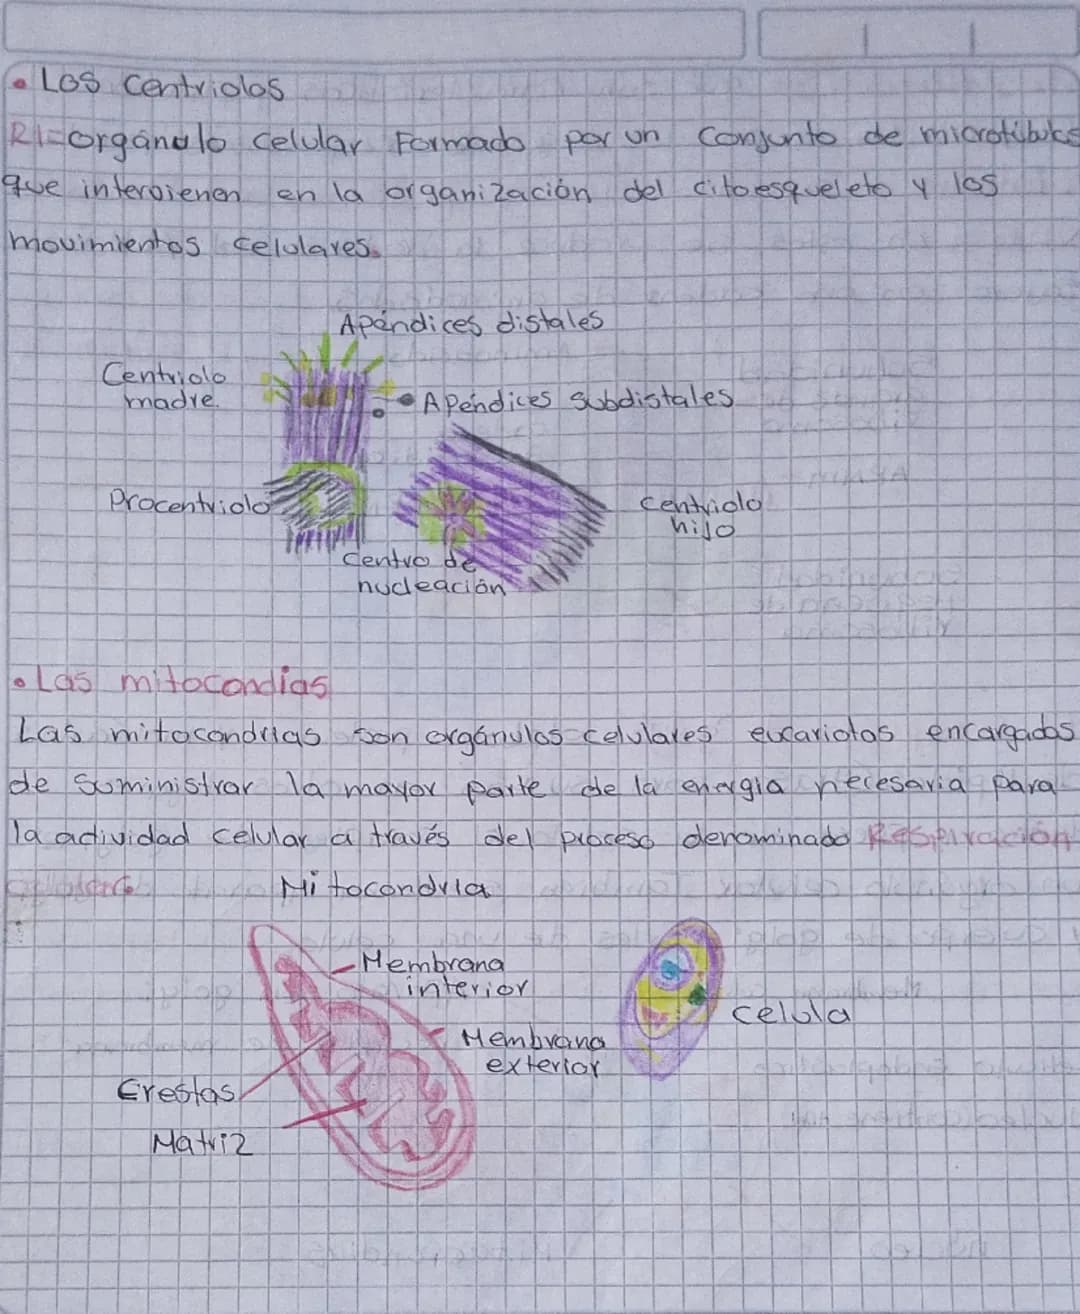 • Los Centriolos
R/=orgánulo celular Formado por un conjunto de microtúbulos
que intervienen en la organización del citoesqueleto y los
movimientos celulares.
Apéndices distales
Centriolo
madre.
• Apéndices subdistales
Procentriolo
Centriolo
hijo
Centro de
nucleación
• Las mitocondias
Las mitocondrias son orgánulos celulares eucariotas encargados
de suministrar la mayor parte de la energía necesaria para
la actividad celular a través del proceso denominado Respiración
celular.
Mitocondria
Membrana
interior
celula
Membrana
exterior
Crestas
Matriz